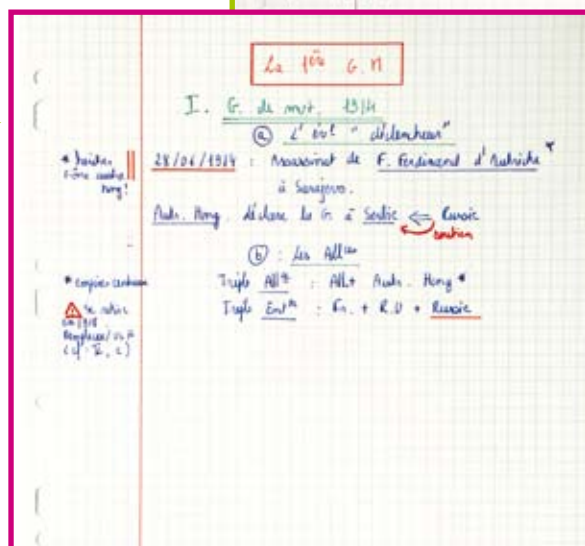 La 1ère G. M
I. G. de mvt. 1914
ⓐ L'évt "déclencheur"
* héritier
trône austro
hong!
28/06/1914 : Assassinat de F. Ferdinand d'Autriche *
à Sarajevo.
Autr. Hong. déclare la G. à Serbie ⇐ Russie
soutien
ⓑ : Les All ces
* empires centraux
Triple All ce : All. + Autr. Hong *
Triple Ent te : Fr. + R.U + Russie
Se retire
(cf. II, c)